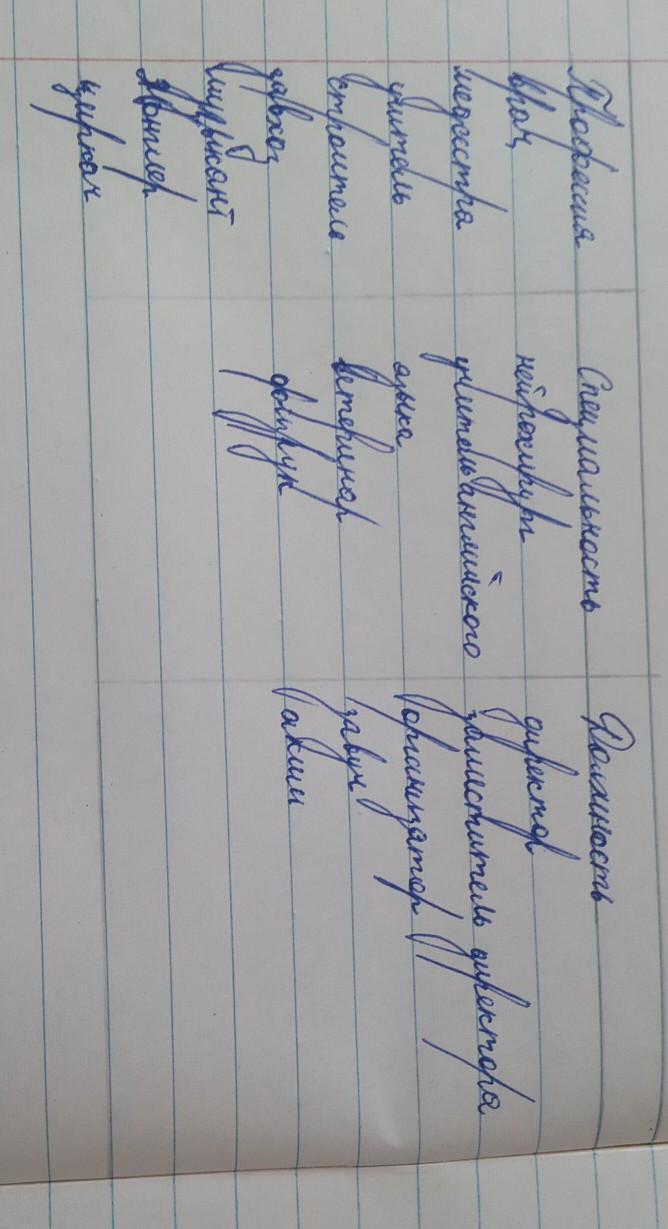 Профессия Специальность Должность
врач нейрохирург директор
медсестра учитель английского заместитель директора
учитель языка организатор
строитель ветеринар завуч
завхоз фотрук аким
музыкант
жонглер
циркач